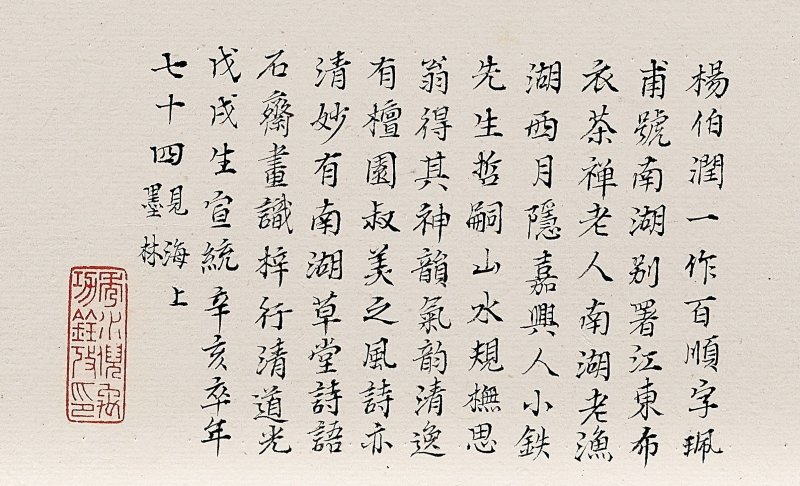 楊伯潤一作百順字珮
甫號南湖别署江東布
衣茶禅老人南湖老漁
湖西月隱嘉興人小鉄
先生哲嗣山水規橅思
翁得其神韻氣韵清逸
有檀園叔美之風詩亦
清妙有南湖草堂詩語
石齋畫識梓行清道光
戊戌生宣統辛亥卒年
七十四
見海上
墨林